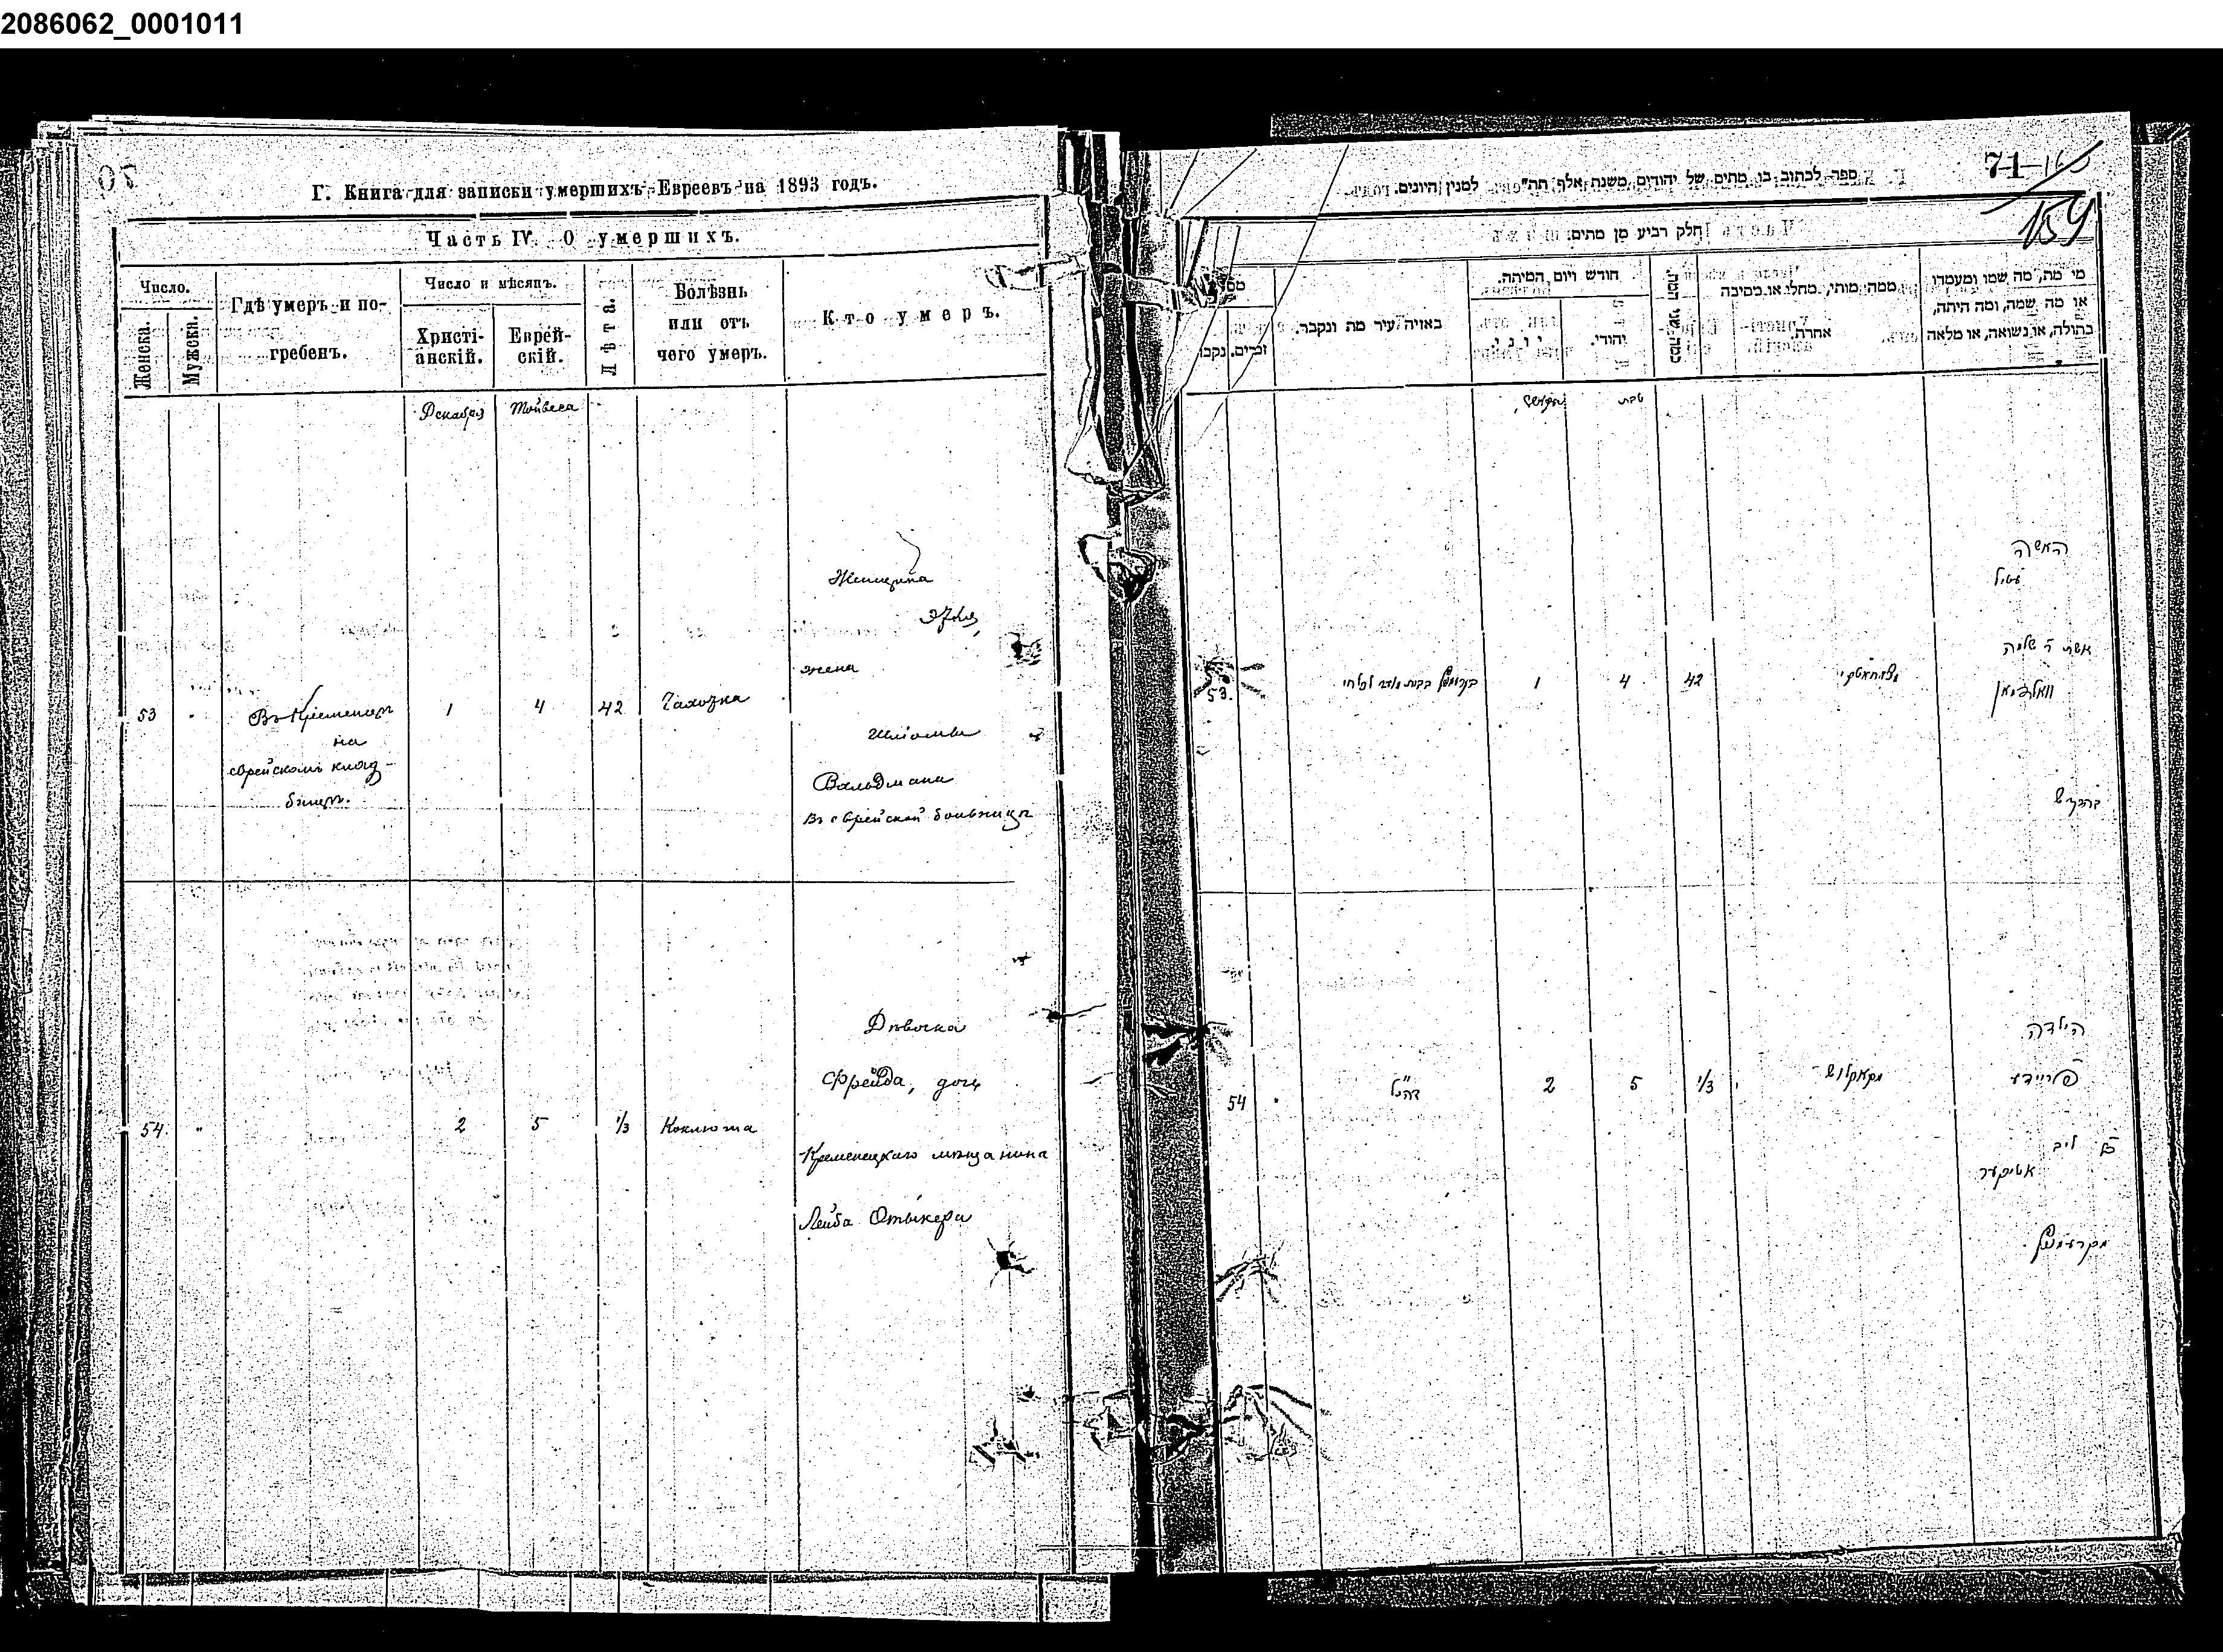 2086062_0001011
Г. Книга для записки умершихъ Евреевъ на 1893 годъ.
Часть IV. О умершихъ.
Число.
Женска.
Мужска.
Гдѣ умеръ и по-
гребенъ.
Число и мѣсяцъ.
Христі-
анскій.
Еврей-
скій.
Лѣта.
Болѣзнь
или отъ
чего умеръ.
Кто умеръ.
Декабря
Тойвеса
53
Въ Кременцѣ
на
еврейскомъ клад-
бищѣ.
1
4
42
Чахотка
Женщина
жена
Шліомы
Вальдмана
въ еврейской больницѣ
54
2
5
1/3
Коклюша
Дѣвочка
Фрейда, дочь
Кременецкаго мѣщанина
Лейба Отыкера
71
159
ספר לכתוב בו מתים של יהודים משנת אלף תת" למנין היונים.
חלק רביע מן מתים
מי מת, מה שמו ומעמדו
או מה שמה, ומה היתה,
בתולה, או נשואה, או מלאה
ממה מותי, מחלי או מסיבה
אחרת.
כמה שני המת.
חודש ויום המיתה.
יהודי.
יוני.
באויה עיר מת ונקבר.
זכרים.
טבת
האשה
אשת ר שלמה
וואלדמאן
42
4
1
53.
הילדה
פריידע
ליב
אטיקער
1/3
5
2
54